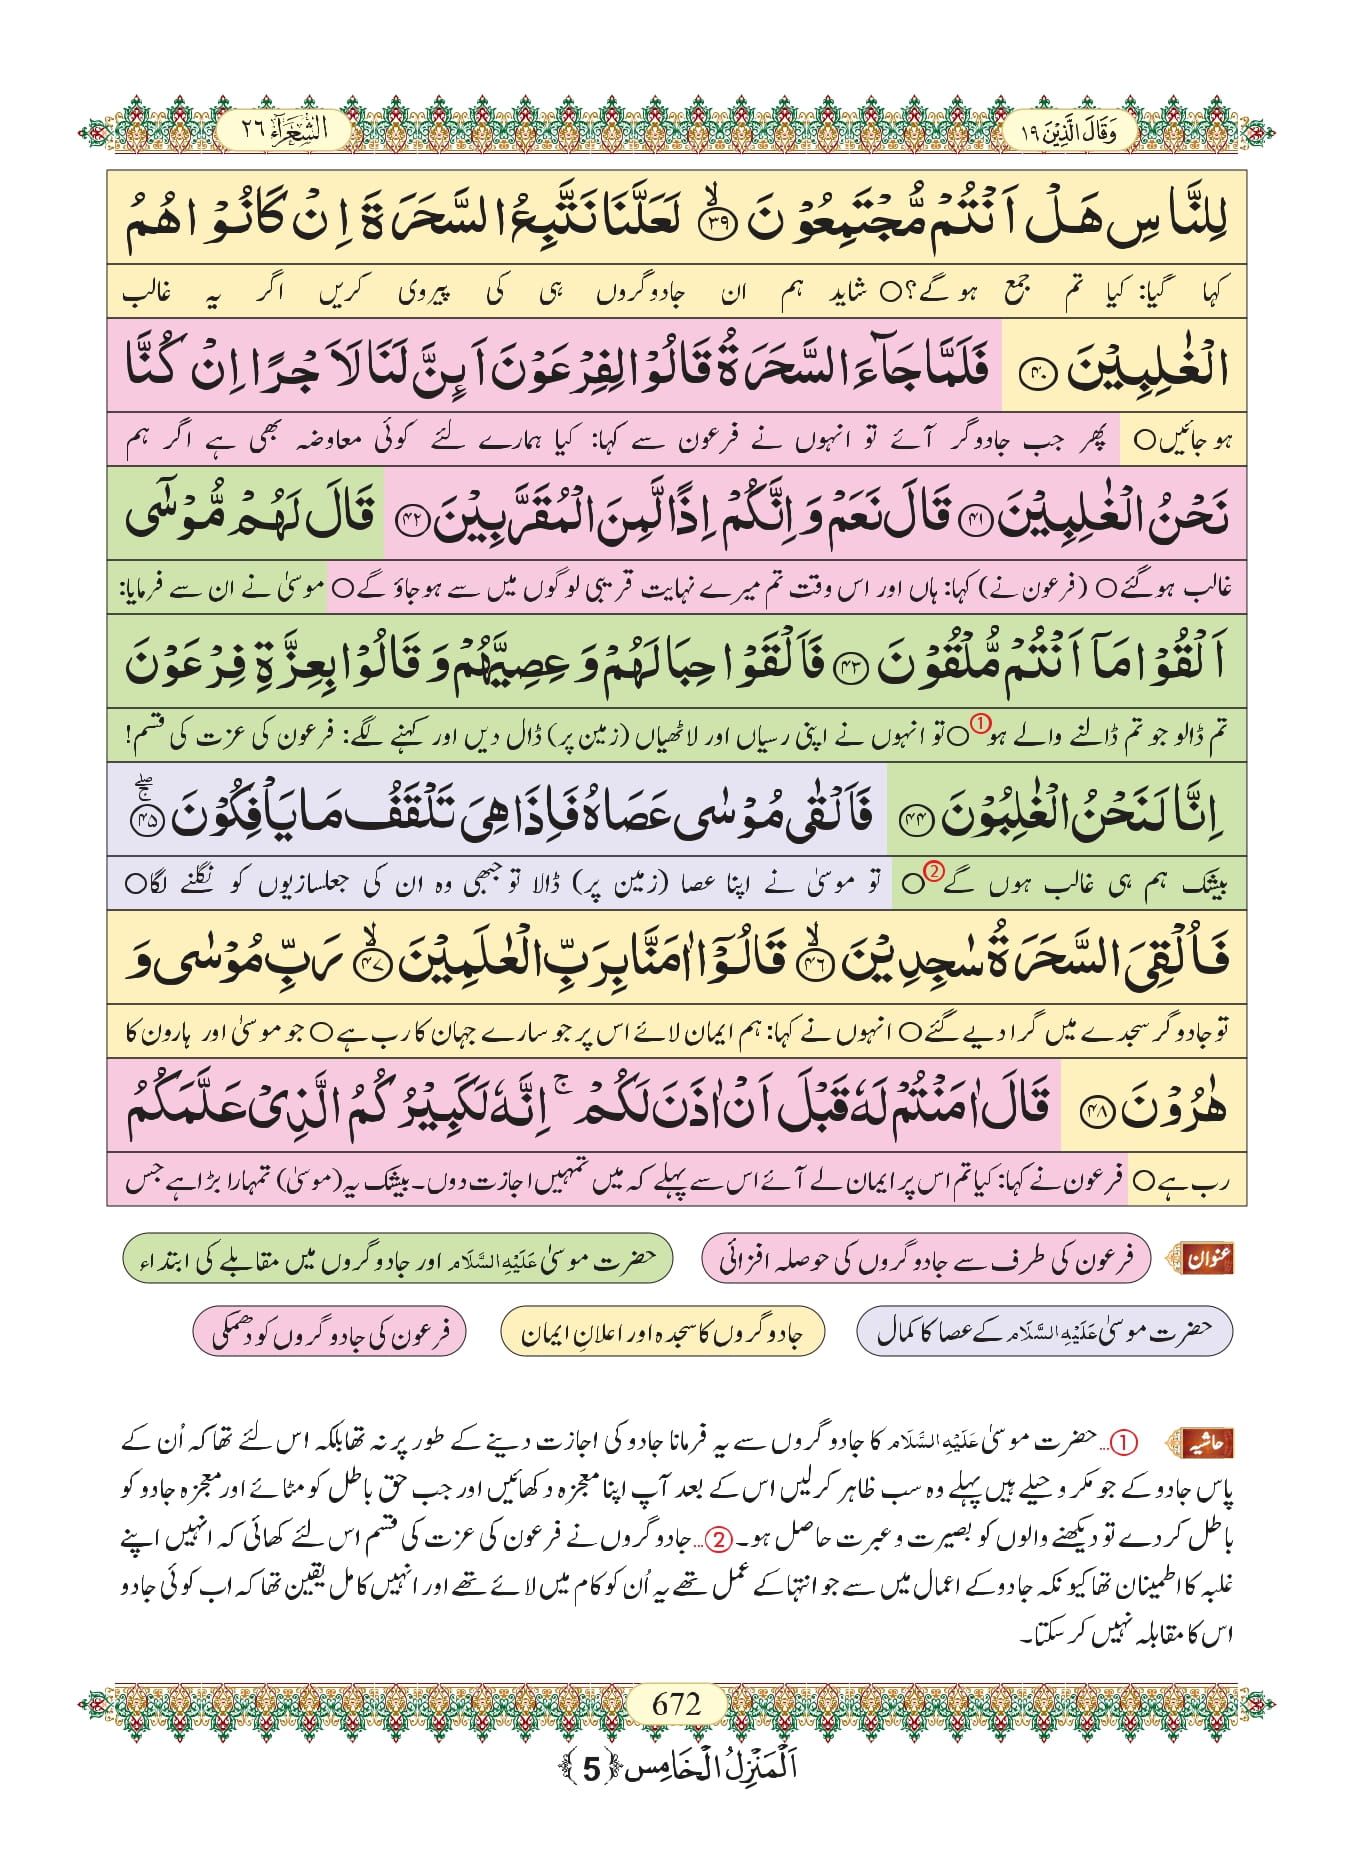 وَقَالَ الَّذِيْنَ ١٩
الشُّعَرَآء ٢٦
لِلنَّاسِ هَلْ اَنْتُمْ مُّجْتَمِعُوْنَ ﴿۳۹﴾ۙ لَعَلَّنَا نَتَّبِعُ السَّحَرَةَ اِنْ كَانُوْا هُمُ
کہا گیا: کیا تم جمع ہوگے؟○ شاید ہم ان جادوگروں ہی کی پیروی کریں اگر یہ غالب
الْغٰلِبِيْنَ ﴿۴۰﴾ فَلَمَّا جَآءَ السَّحَرَةُ قَالُوْا لِفِرْعَوْنَ اَىِٕنَّ لَنَا لَاَجْرًا اِنْ كُنَّا
ہو جائیں○ پھر جب جادوگر آئے تو انہوں نے فرعون سے کہا: کیا ہمارے لئے کوئی معاوضہ بھی ہے اگر ہم
نَحْنُ الْغٰلِبِيْنَ ﴿۴۱﴾ قَالَ نَعَمْ وَ اِنَّكُمْ اِذًا لَّمِنَ الْمُقَرَّبِيْنَ ﴿۴۲﴾ قَالَ لَهُمْ مُّوْسٰۤى
غالب ہوگئے○ (فرعون نے) کہا: ہاں اور اس وقت تم میرے نہایت قریبی لوگوں میں سے ہوجاؤ گے○ موسیٰ نے ان سے فرمایا:
اَلْقُوْا مَاۤ اَنْتُمْ مُّلْقُوْنَ ﴿۴۳﴾ فَاَلْقَوْا حِبَالَهُمْ وَ عِصِيَّهُمْ وَ قَالُوْا بِعِزَّةِ فِرْعَوْنَ
تم ڈالو جو تم ڈالنے والے ہو①○ تو انہوں نے اپنی رسیاں اور لاٹھیاں (زمین پر) ڈال دیں اور کہنے لگے: فرعون کی عزت کی قسم!
اِنَّا لَنَحْنُ الْغٰلِبُوْنَ ﴿۴۴﴾ فَاَلْقٰى مُوْسٰى عَصَاهُ فَاِذَا هِيَ تَلْقَفُ مَا يَاْفِكُوْنَ ﴿۴۵﴾ۚۖ
بیشک ہم ہی غالب ہوں گے②○ تو موسیٰ نے اپنا عصا (زمین پر) ڈالا تو جبھی وہ ان کی جعلسازیوں کو نگلنے لگا○
فَاُلْقِيَ السَّحَرَةُ سٰجِدِيْنَ ﴿۴۶﴾ۙ قَالُوْۤا اٰمَنَّا بِرَبِّ الْعٰلَمِيْنَ ﴿۴۷﴾ۙ رَبِّ مُوْسٰى وَ
تو جادوگر سجدے میں گرا دیے گئے○ انہوں نے کہا: ہم ایمان لائے اس پر جو سارے جہان کا رب ہے○ جو موسیٰ اور ہارون کا
هٰرُوْنَ ﴿۴۸﴾ قَالَ اٰمَنْتُمْ لَهٗ قَبْلَ اَنْ اٰذَنَ لَكُمْ ۚ اِنَّهٗ لَكَبِيْرُكُمُ الَّذِيْ عَلَّمَكُمُ
رب ہے○ فرعون نے کہا: کیا تم اس پر ایمان لے آئے اس سے پہلے کہ میں تمہیں اجازت دوں۔ بیشک یہ (موسیٰ) تمہارا بڑا ہے جس
عنوان فرعون کی طرف سے جادوگروں کی حوصلہ افزائی حضرت موسیٰ عَلَیْہِ السَّلَام اور جادوگروں میں مقابلے کی ابتداء
حضرت موسیٰ عَلَیْہِ السَّلَام کے عصا کا کمال جادوگروں کا سجدہ اور اعلانِ ایمان فرعون کی جادوگروں کو دھمکی
حاشیہ ①... حضرت موسیٰ عَلَیْہِ السَّلَام کا جادوگروں سے یہ فرمانا جادو کی اجازت دینے کے طور پر نہ تھا بلکہ اس لئے تھا کہ اُن کے
پاس جادو کے جو مکر و حیلے ہیں پہلے وہ سب ظاہر کرلیں اس کے بعد آپ اپنا معجزہ دکھائیں اور جب حق باطل کو مٹائے اور معجزہ جادو کو
باطل کردے تو دیکھنے والوں کو بصیرت و عبرت حاصل ہو۔ ②... جادوگروں نے فرعون کی عزت کی قسم اس لئے کھائی کہ انہیں اپنے
غلبہ کا اطمینان تھا کیونکہ جادو کے اعمال میں سے جو انتہا کے عمل تھے یہ اُن کو کام میں لائے تھے اور انہیں کامل یقین تھا کہ اب کوئی جادو
اس کا مقابلہ نہیں کرسکتا۔
672
اَلْمَنْزِلُ الْخَامِس ﴿5﴾